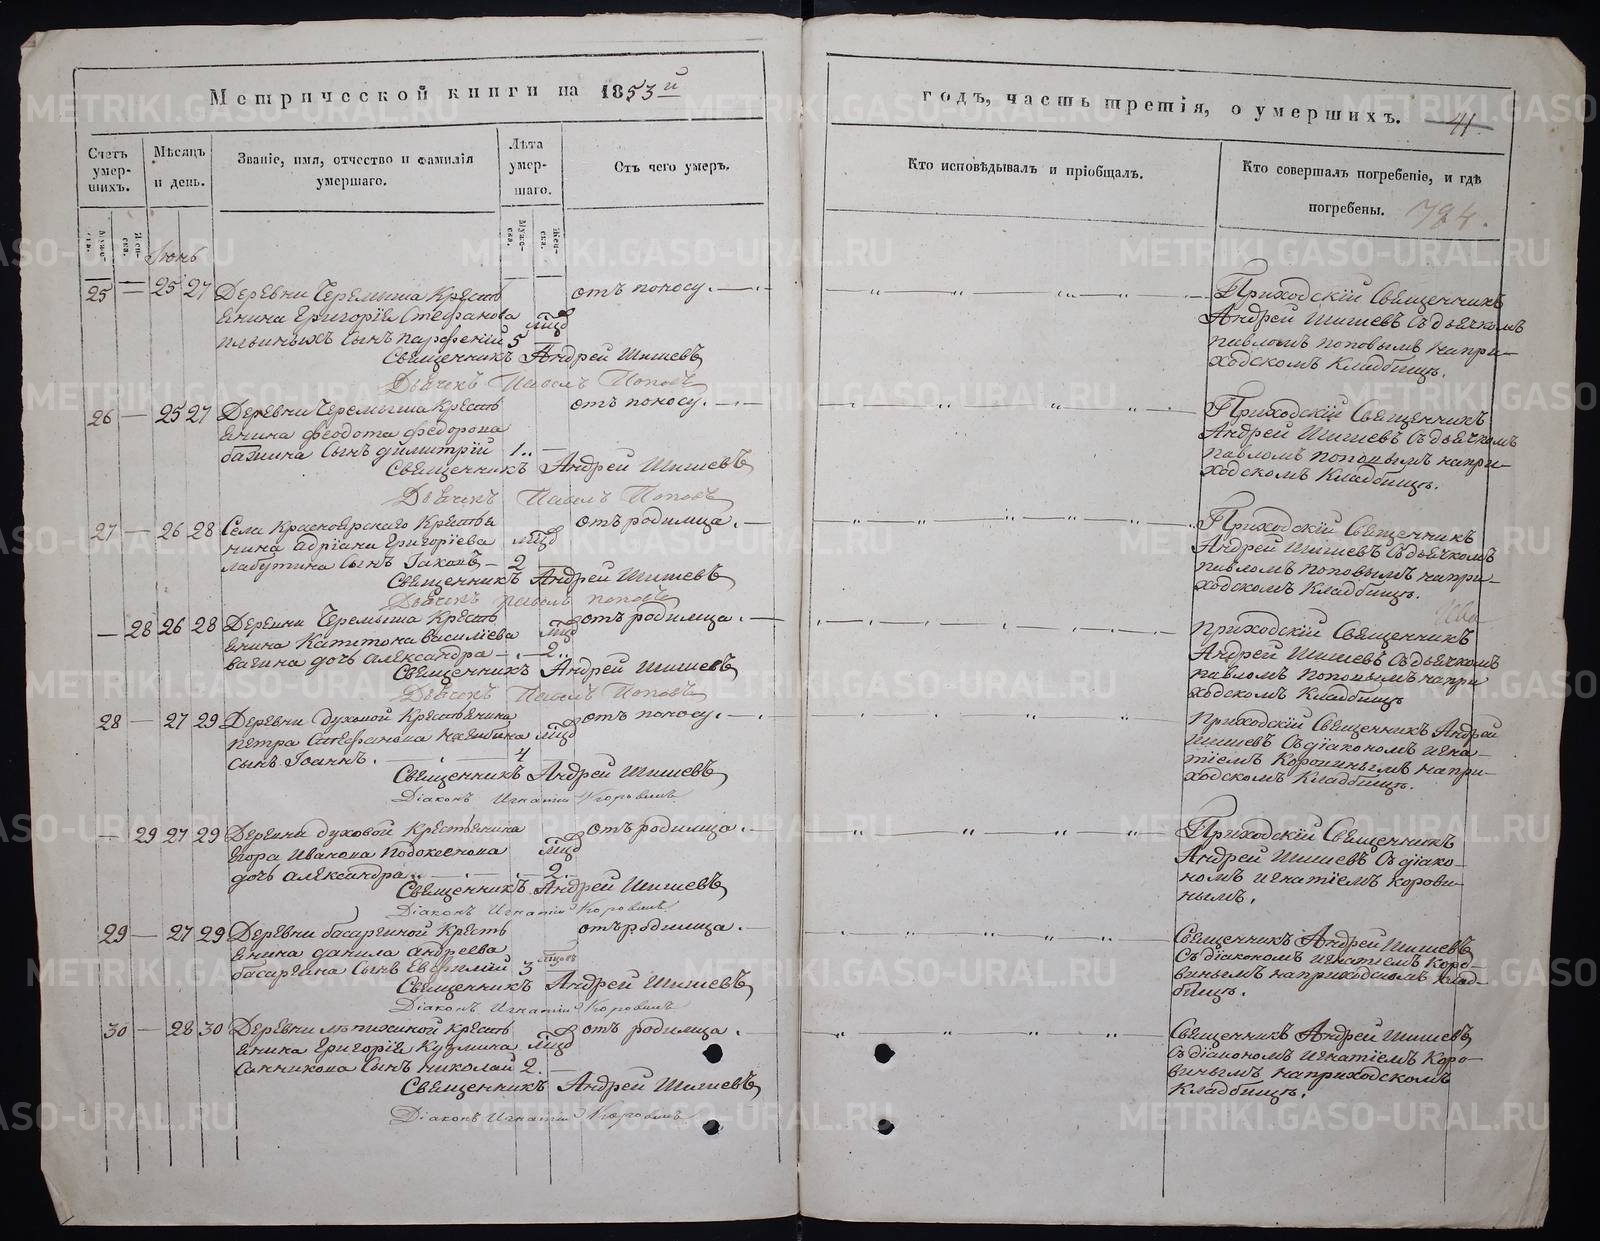 Метрической книги на 1853й
годъ, часть третія, о умершихъ.
41
Счетъ умерших.
Мѣсяцъ и день.
Званіе, имя, отчество и фамилія умершаго.
Лѣта умершаго.
Отъ чего умеръ.
Кто исповѣдывалъ и пріобщалъ.
Кто совершалъ погребеніе, и гдѣ погребены.
784.
Іюнь
25 — 25 27 Деревни Черемыша Кресть
янина Григорія Стефанова
сынъ Парфеній 5 мцъ
отъ поносу.
Приходскій Священникъ
Андрей Шишевъ съ дьячкомъ
павломъ поповымъ на при-
ходскомъ Кладбищѣ.
Священникъ Андрей Шишевъ
Дьячекъ Павелъ Поповъ
26 — 25 27 Деревни Черемыша Кресть
янина Феодота Федорова
сынъ димитрій 1..
отъ поносу.
Приходскій Священникъ
Андрей Шишевъ съ дьячкомъ
павломъ поповымъ на при-
ходскомъ Кладбищѣ.
Священникъ Андрей Шишевъ
Дьячекъ Павелъ Поповъ
27 — 26 28 Села Красноярскаго Крестья
нина Адріана Григоріева мцъ
лабутина сынъ Іаковъ — 2
отъ родимца.
Приходскій Священникъ
Андрей Шишевъ съ дьячкомъ
павломъ поповымъ на при-
ходскомъ Кладбищѣ.
Священникъ Андрей Шишевъ
Дьячекъ Павелъ Поповъ
— 28 26 28 Деревни Черемыша Кресть
янина Капитона Василіева мцъ
дочь александра — 2..
отъ родимца.
приходскій Священникъ
Андрей Шишевъ съ дьячкомъ
павломъ поповымъ на при
ходскомъ Кладбищѣ
Священникъ Андрей Шишевъ
Дьячекъ Павелъ Поповъ
28 — 27 29 Деревни духовой Крестьянина
петра Стефанова мцъ
сынъ Іоаннъ. 4
отъ поносу.
приходскій Священникъ Андрей
Шишевъ съ діакономъ игна-
тіемъ Коровинымъ на при-
ходскомъ Кладбищѣ.
Священникъ Андрей Шишевъ
Діаконъ Игнатій Коровинъ
— 29 27 29 Деревни духовой Крестьянина
Егора Иванова мцъ
дочь александра.. 2.
отъ родимца.
Приходскій Священникъ
Андрей Шишевъ съ діако-
номъ игнатіемъ корови-
нымъ.
Священникъ Андрей Шишевъ
Діаконъ Игнатій Коровинъ
29 — 27 29 Деревни басаргиной Кресть
янина данила андреева
басаргина сынъ Евфимій 3
отъ родимца.
Священникъ Андрей Шишевъ
съ діакономъ игнатіемъ Коро-
винымъ на приходскомъ Клад-
бищѣ.
Священникъ Андрей Шишевъ
Діаконъ Игнатій Коровинъ
30 — 28 30 Деревни лепихиной Кресть
янина Григорія Кузмина мцъ
Санникова сынъ николай 2.
отъ родимца
Священникъ Андрей Шишевъ
съ діакономъ игнатіемъ Коро-
винымъ на приходскомъ
Кладбищѣ.
Священникъ Андрей Шишевъ
Діаконъ Игнатій Коровинъ
METRIKI.GASO-URAL.RU